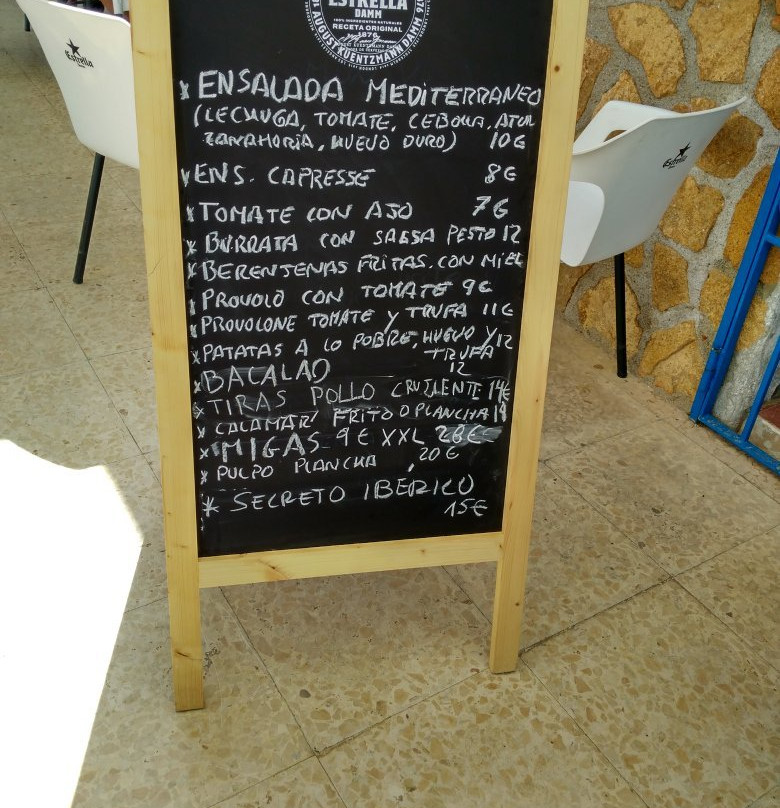 Estrella
ESTRELLA
DAMM
100% INGREDIENTES NATURALES
RECETA ORIGINAL
1876
AUGUST KUENTZMANN DAMM
* ENSALADA MEDITERRANEO
(LECHUGA, TOMATE, CEBOLLA, ATUN
ZANAHORIA, HUEVO DURO) 10€
* ENS. CAPRESSE 8€
* TOMATE CON AJO 7€
* BURRATA CON SALSA PESTO 12
* BERENJENAS FRITAS. CON MIEL
* PROVOLO CON TOMATE 9€
* PROVOLONE TOMATE Y TRUFA 11€
* PATATAS A LO POBRE, HUEVO Y 12
TRUFA
* BACALAO 12
* TIRAS POLLO CRUJIENTE 14€
* CALAMAR FRITO O PLANCHA 14
* MIGAS 9€ XXL 28€
* PULPO PLANCHA 20€
* SECRETO IBERICO
15€
Estrella